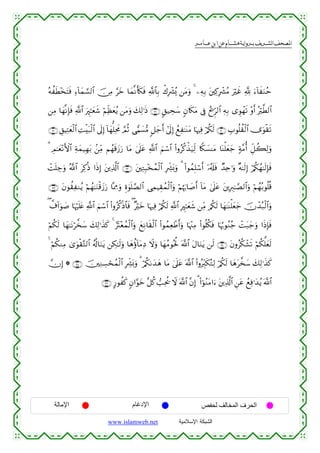 المصحف الشريف برواية هشام عن ابن عامر
حُنَفَآءَ لِلَّهِ غَيْرَ مُشْرِكِينَ بِهِۦ ۚ وَمَن يُشْرِكْ بِٱللَّهِ فَكَأَنَّمَا خَرَّ مِنَ ٱلسَّمَآءِ فَتَخْطَفُهُ
ٱلطَّيْرُ أَوْ تَهْوِى بِهِ ٱلرِّيحُ فِى مَكَانٍ سَحِيقٍ ذَٰلِكَ وَمَن يُعَظِّمْ شَعَٰٓئِرَ ٱللَّهِ فَإِنَّهَا مِن
تَقْوَى ٱلْقُلُوبِ لَكُمْ فِيهَا مَنَٰفِعُ إِلَىٰٓ أَجَلٍ مُّسَمًّى ثُمَّ مَحِلُّهَآ إِلَى ٱلْبَيْتِ ٱلْعَتِيقِ
وَلِكُلِّ أُمَّةٍ جَعَلْنَا مَنسَكًا لِّيَذْكُرُوا۟ ٱسْمَ ٱللَّهِ عَلَىٰ مَا رَزَقَهُم مِّنۢ بَهِيمَةِ ٱلْأَنْعَٰمِ ۗ
فَإِلَٰهُكُمْ إِلَٰهٌ وَٰحِدٌ فَلَهُۥٓ أَسْلِمُوا۟ ۗ وَبَشِّرِ ٱلْمُخْبِتِينَ ٱلَّذِينَ إِذَا ذُكِرَ ٱللَّهُ وَجِلَتْ
قُلُوبُهُمْ وَٱلصَّٰبِرِينَ عَلَىٰ مَآ أَصَابَهُمْ وَٱلْمُقِيمِى ٱلصَّلَوٰةِ وَمِمَّا رَزَقْنَٰهُمْ يُنفِقُونَ
وَٱلْبُدْنَ جَعَلْنَٰهَا لَكُم مِّن شَعَٰٓئِرِ ٱللَّهِ لَكُمْ فِيهَا خَيْرٌ ۖ فَٱذْكُرُوا۟ ٱسْمَ ٱللَّهِ عَلَيْهَا صَوَآفَّ ۖ
فَإِذَا وَجَبَتْ جُنُوبُهَا فَكُلُوا۟ مِنْهَا وَأَطْعِمُوا۟ ٱلْقَانِعَ وَٱلْمُعْتَرَّ ۚ كَذَٰلِكَ سَخَّرْنَٰهَا لَكُمْ
لَعَلَّكُمْ تَشْكُرُونَ لَن يَنَالَ ٱللَّهَ لُحُومُهَا وَلَا دِمَآؤُهَا وَلَٰكِن يَنَالُهُ ٱلتَّقْوَىٰ مِنكُمْ ۚ
كَذَٰلِكَ سَخَّرَهَا لَكُمْ لِتُكَبِّرُوا۟ ٱللَّهَ عَلَىٰ مَا هَدَىٰكُمْ ۗ وَبَشِّرِ ٱلْمُحْسِنِينَ ۞ إِنَّ
ٱللَّهَ يُدَٰفِعُ عَنِ ٱلَّذِينَ ءَامَنُوٓا۟ ۗ إِنَّ ٱللَّهَ لَا يُحِبُّ كُلَّ خَوَّانٍ كَفُورٍ
الحرف المخالف لحفص الإدغام الإمالة
الشبكة الإسلامية www.islamweb.net